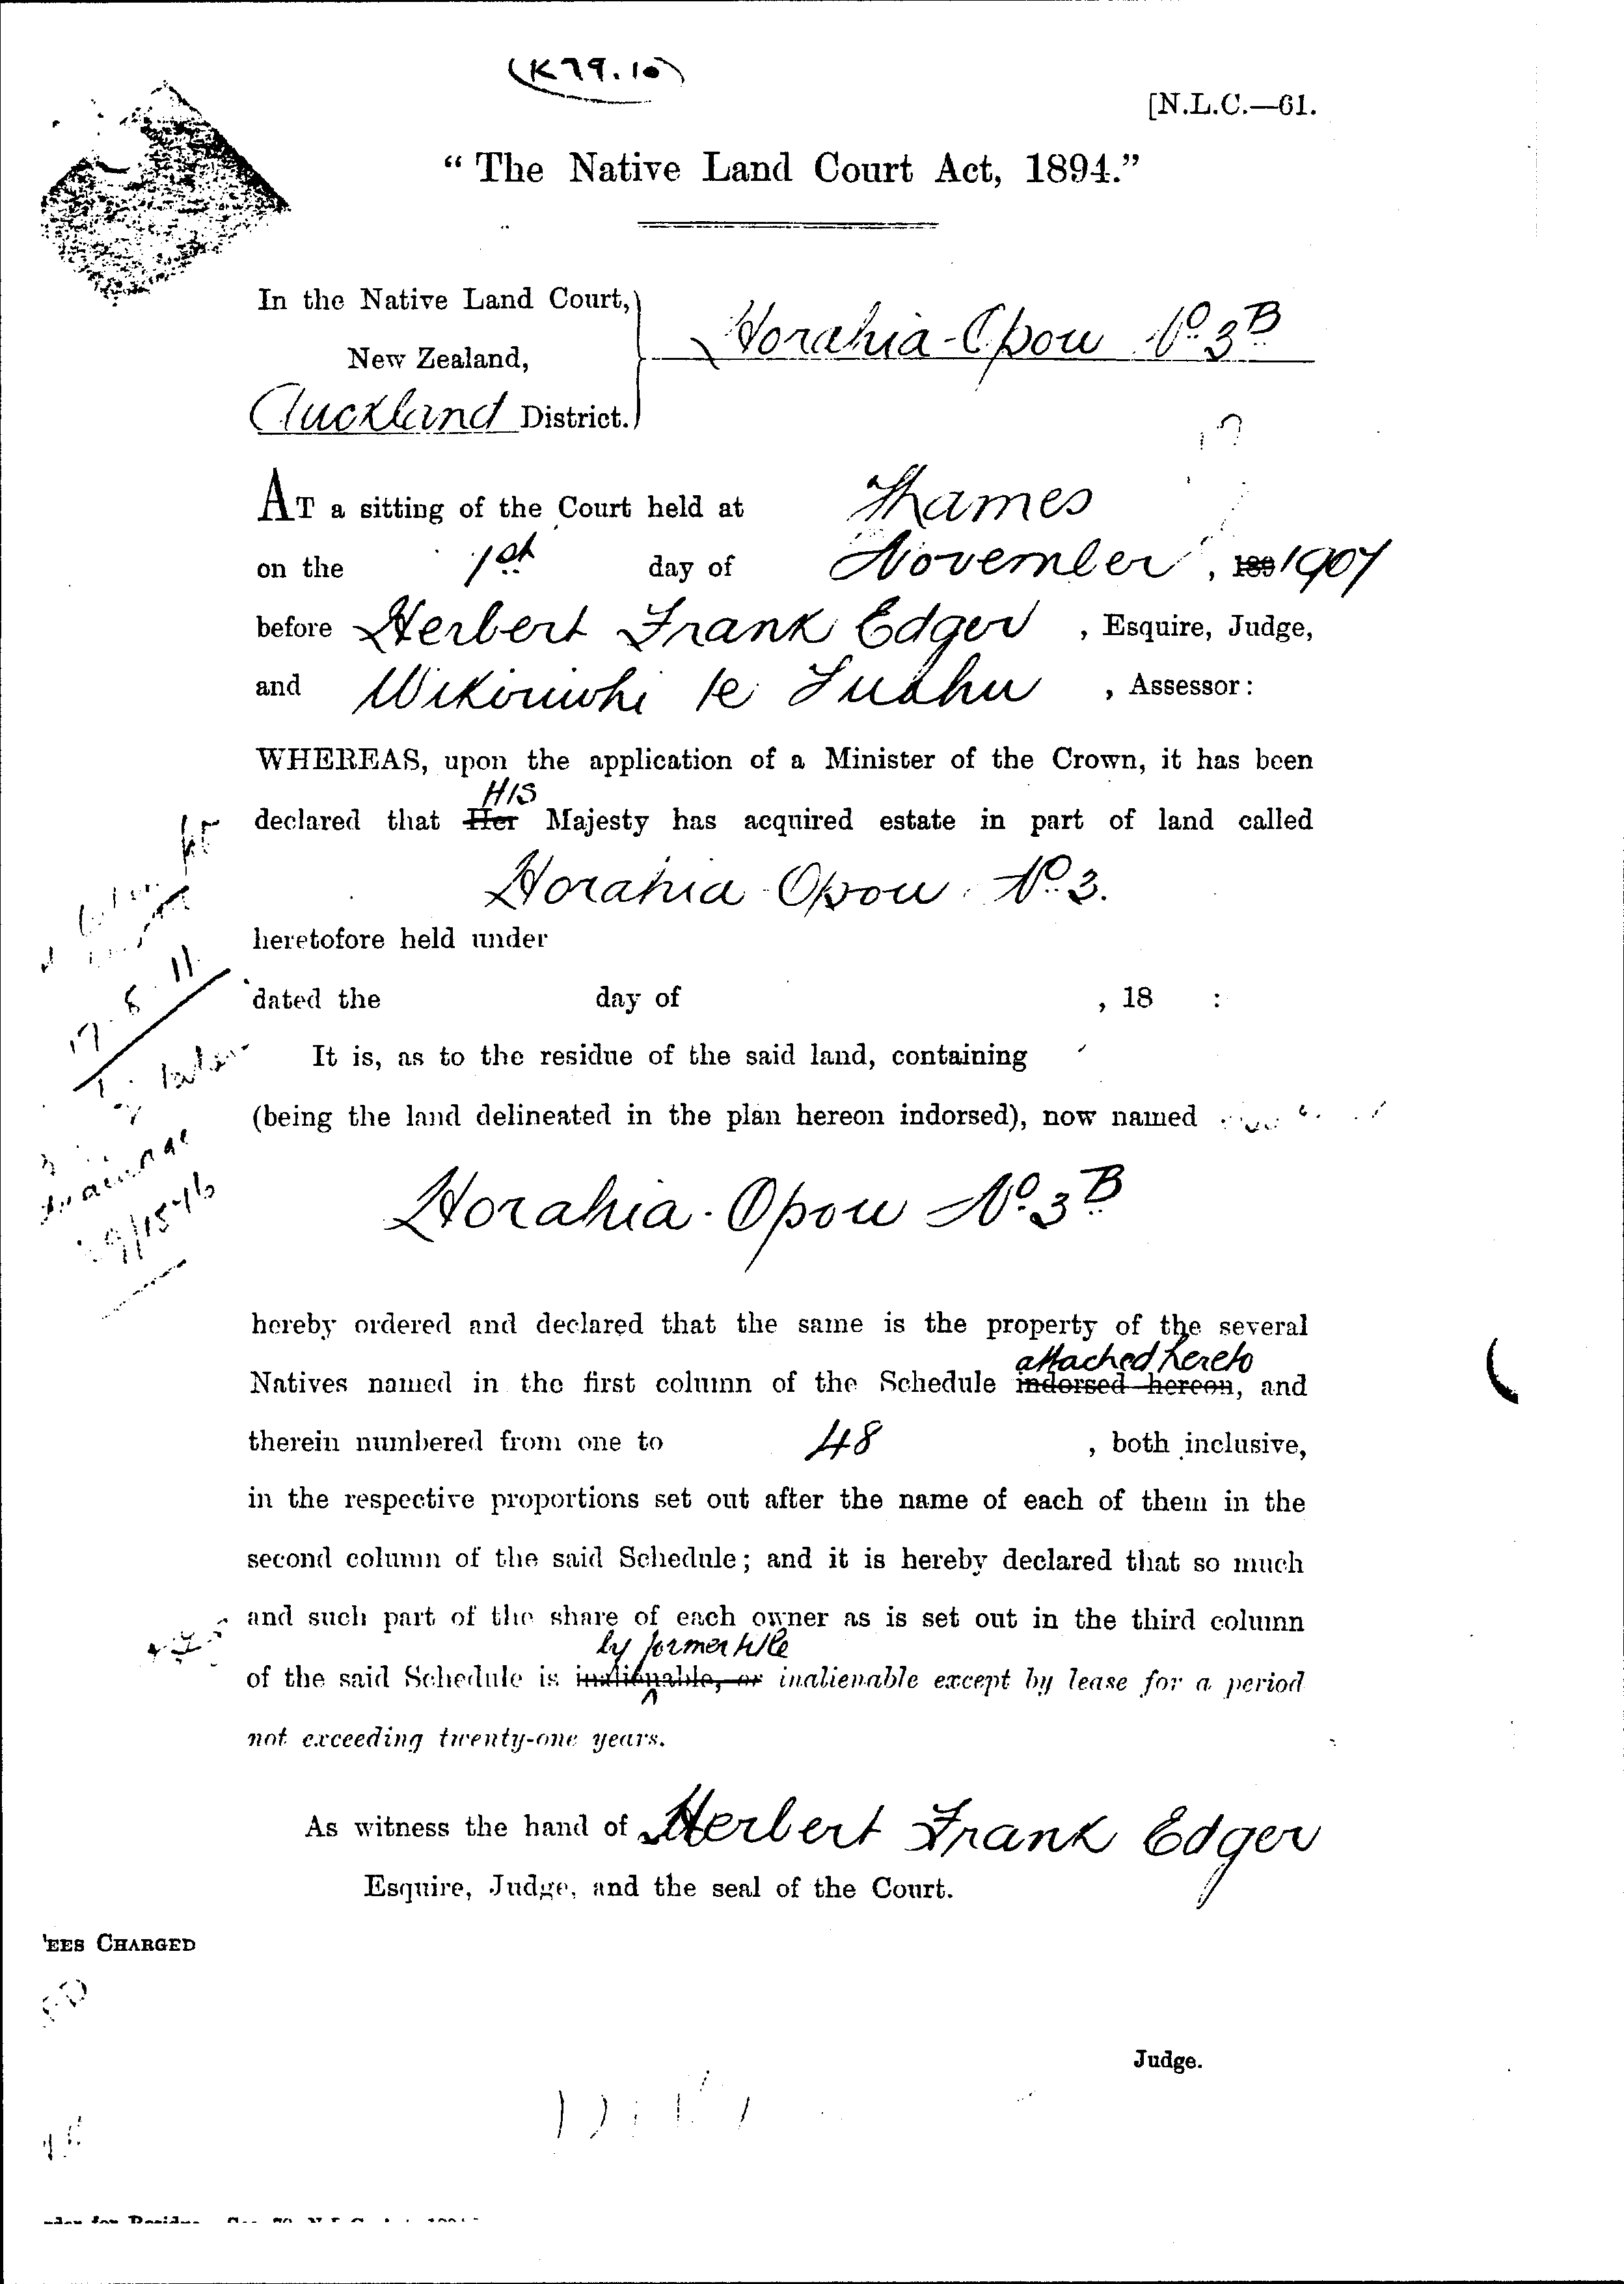 (K79.10)
[N.L.C.—61.
“The Native Land Court Act, 1894.”
In the Native Land Court,
New Zealand,
Auckland District.
Horahia-Opou No. 3B
AT a sitting of the Court held at Thames
on the 1st day of November, 189 1907
before Herbert Frank Edger, Esquire, Judge,
and Wikiriwhi te Tuahu, Assessor:
WHEREAS, upon the application of a Minister of the Crown, it has been
HIS
declared that Her Majesty has acquired estate in part of land called
Horahia Opou No. 3.
heretofore held under
dated the day of , 18 :
It is, as to the residue of the said land, containing
(being the land delineated in the plan hereon indorsed), now named
Horahia-Opou No. 3B
hereby ordered and declared that the same is the property of the several
attached hereto
Natives named in the first column of the Schedule indorsed hereon, and
therein numbered from one to 48, both inclusive,
in the respective proportions set out after the name of each of them in the
second column of the said Schedule; and it is hereby declared that so much
and such part of the share of each owner as is set out in the third column
by former title
of the said Schedule is inalienable, or inalienable except by lease for a period
not exceeding twenty-one years.
As witness the hand of Herbert Frank Edger
Esquire, Judge, and the seal of the Court.
'EES CHARGED
Judge.
17.8.11